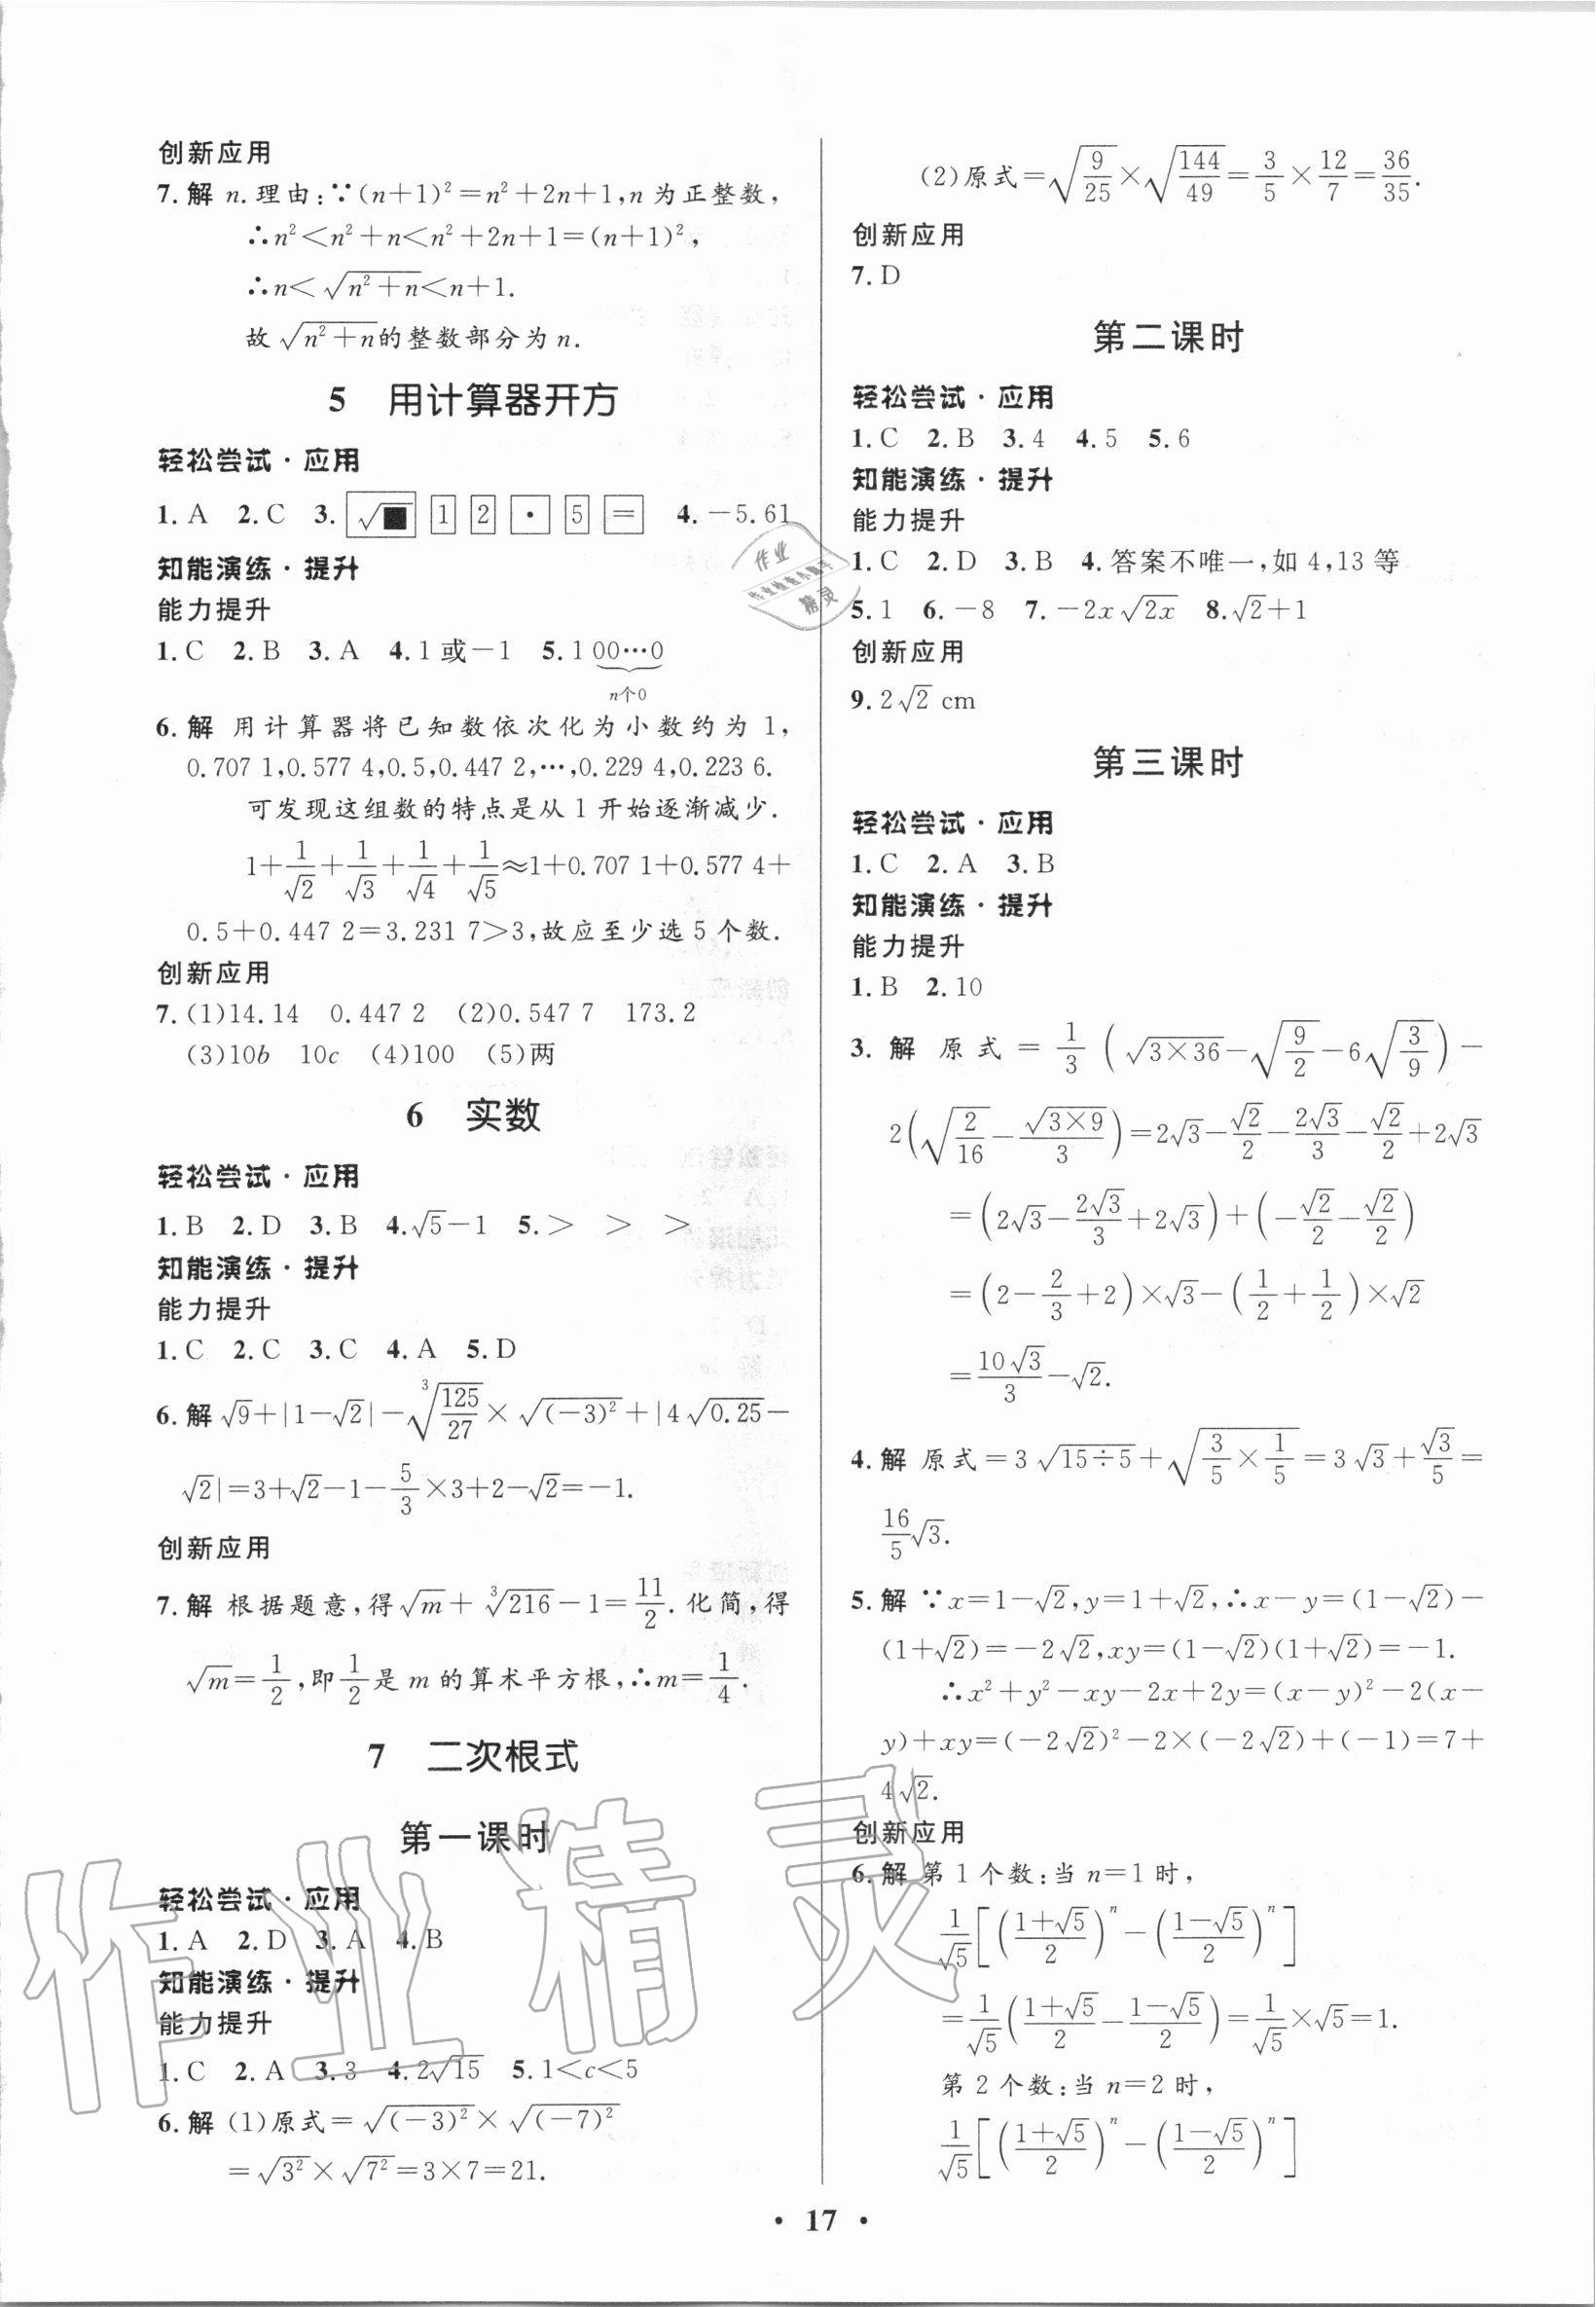 创新应用
7.解 n.理由:∵(n+1)²=n²+2n+1,n为正整数,
∴n²<n²+n<n²+2n+1=(n+1)²,
∴n<√(n²+n)<n+1.
故√(n²+n)的整数部分为n.
5 用计算器开方
轻松尝试·应用
1.A 2.C 3.√■ 1 2 · 5 = 4.-5.61
知能演练·提升
能力提升
1.C 2.B 3.A 4.1或-1 5.1 00…0
n个0
6.解 用计算器将已知数依次化为小数约为1,
0.707 1,0.577 4,0.5,0.447 2,…,0.229 4,0.223 6.
可发现这组数的特点是从1开始逐渐减少.
1+1/√2+1/√3+1/√4+1/√5≈1+0.707 1+0.577 4+
0.5+0.447 2=3.231 7>3,故应至少选5个数.
创新应用
7.(1)14.14 0.447 2 (2)0.547 7 173.2
(3)10b 10c (4)100 (5)两
6 实数
轻松尝试·应用
1.B 2.D 3.B 4.√5-1 5.> > >
知能演练·提升
能力提升
1.C 2.C 3.C 4.A 5.D
6.解 √9+|1-√2|-∛(125/27)×√((-3)²)+|4√0.25-
√2|=3+√2-1-5/3×3+2-√2=-1.
创新应用
7.解 根据题意,得√m+∛216-1=11/2.化简,得
√m=1/2,即1/2是m的算术平方根,∴m=1/4.
7 二次根式
第一课时
轻松尝试·应用
1.A 2.D 3.A 4.B
知能演练·提升
能力提升
1.C 2.A 3.3 4.2√15 5.1<c<5
6.解 (1)原式=√((-3)²)×√((-7)²)
=√(3²)×√(7²)=3×7=21.
(2)原式=√(9/25)×√(144/49)=3/5×12/7=36/35.
创新应用
7.D
第二课时
轻松尝试·应用
1.C 2.B 3.4 4.5 5.6
知能演练·提升
能力提升
1.C 2.D 3.B 4.答案不唯一,如4,13等
5.1 6.-8 7.-2x√(2x) 8.√2+1
创新应用
9.2√2 cm
第三课时
轻松尝试·应用
1.C 2.A 3.B
知能演练·提升
能力提升
1.B 2.10
3.解 原式=1/3(√(3×36)-√(9/2)-6√(3/9))-
2(√(2/16)-√(3×9)/3)=2√3-√2/2-2√3/3-√2/2+2√3
=(2√3-2√3/3+2√3)+(-√2/2-√2/2)
=(2-2/3+2)×√3-(1/2+1/2)×√2
=10√3/3-√2.
4.解 原式=3√(15÷5)+√(3/5×1/5)=3√3+√3/5=
16/5√3.
5.解 ∵x=1-√2,y=1+√2,∴x-y=(1-√2)-
(1+√2)=-2√2,xy=(1-√2)(1+√2)=-1.
∴x²+y²-xy-2x+2y=(x-y)²-2(x-
y)+xy=(-2√2)²-2×(-2√2)+(-1)=7+
4√2.
创新应用
6.解 第1个数:当n=1时,
1/√5[((1+√5)/2)ⁿ-((1-√5)/2)ⁿ]
=1/√5((1+√5)/2-(1-√5)/2)=1/√5×√5=1.
第2个数:当n=2时,
1/√5[((1+√5)/2)ⁿ-((1-√5)/2)ⁿ]
· 17 ·
作业精灵
作业
作业检查小助手
精灵